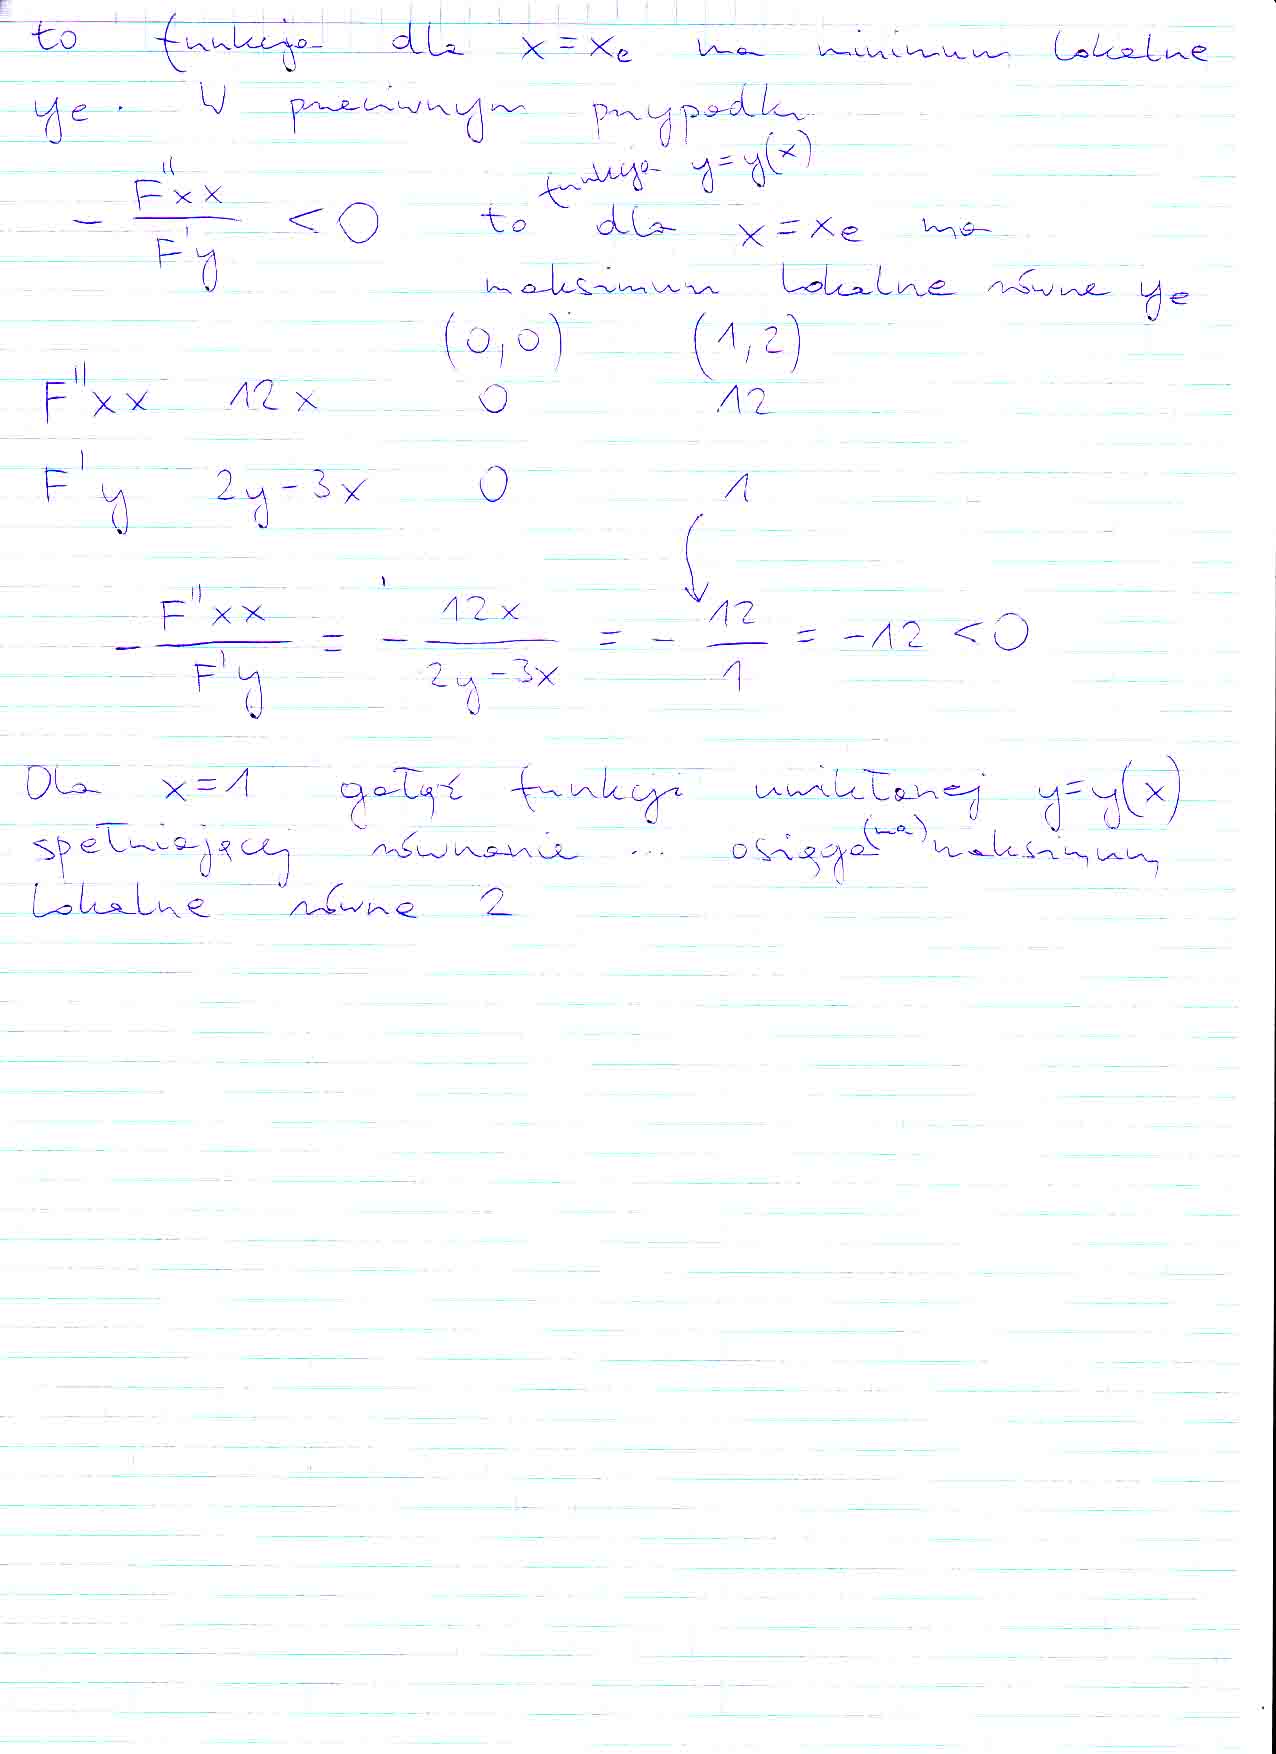 to funkcja dla x = xe ma minimum lokalne
ye. W przeciwnym przypadku
funkcja y=y(x)
- F''xx / F'y < 0 to dla x = xe ma
maksimum lokalne równe ye
(0,0) (1,2)
F''xx 12x 0 12
F'y 2y-3x 0 1
- F''xx / F'y = - 12x / 2y-3x = - 12 / 1 = -12 < 0
Dla x=1 gałąź funkcji uwikłanej y=y(x)
spełniającej równanie ... osiąga (ma) maksimum
lokalne równe 2